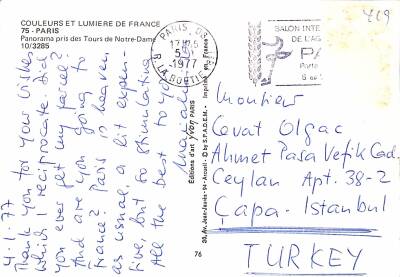 COULEURS ET LUMIERE DE FRANCE
75 - PARIS
Panorama pris des Tours de Notre-Dame
10/3285
4-1-77
Thank you for your wishes
which I reciprocate. Did
you ever get my parcel?
And are you going to
France? Paris is heaven
as usual, a bit expen-
sive, but so stimulating
All the best to you
Editions d'art yvon PARIS
® by S.P.A.D.E.M. - Imprimé en France
39, Av. Jean-Jaurès - 94 - Arcueil
76
PARIS
17H15
5-1
1977
R. LA BOETIE
SALON INTE
DE L'AG
PA
Porte
6 au
419
Monsieur
Cevat Olgaç
Ahmet Paşa Vefik Cad.
Ceylan Apt. 38-2
Çapa - Istanbul
TURKEY